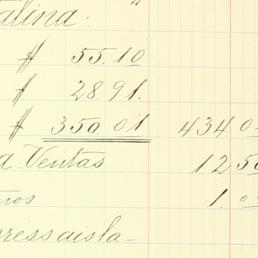 alina.
# 55.10
# 28.91.
# 350.01 434 0
a Ventas 12 50
1. 0
press aisla-